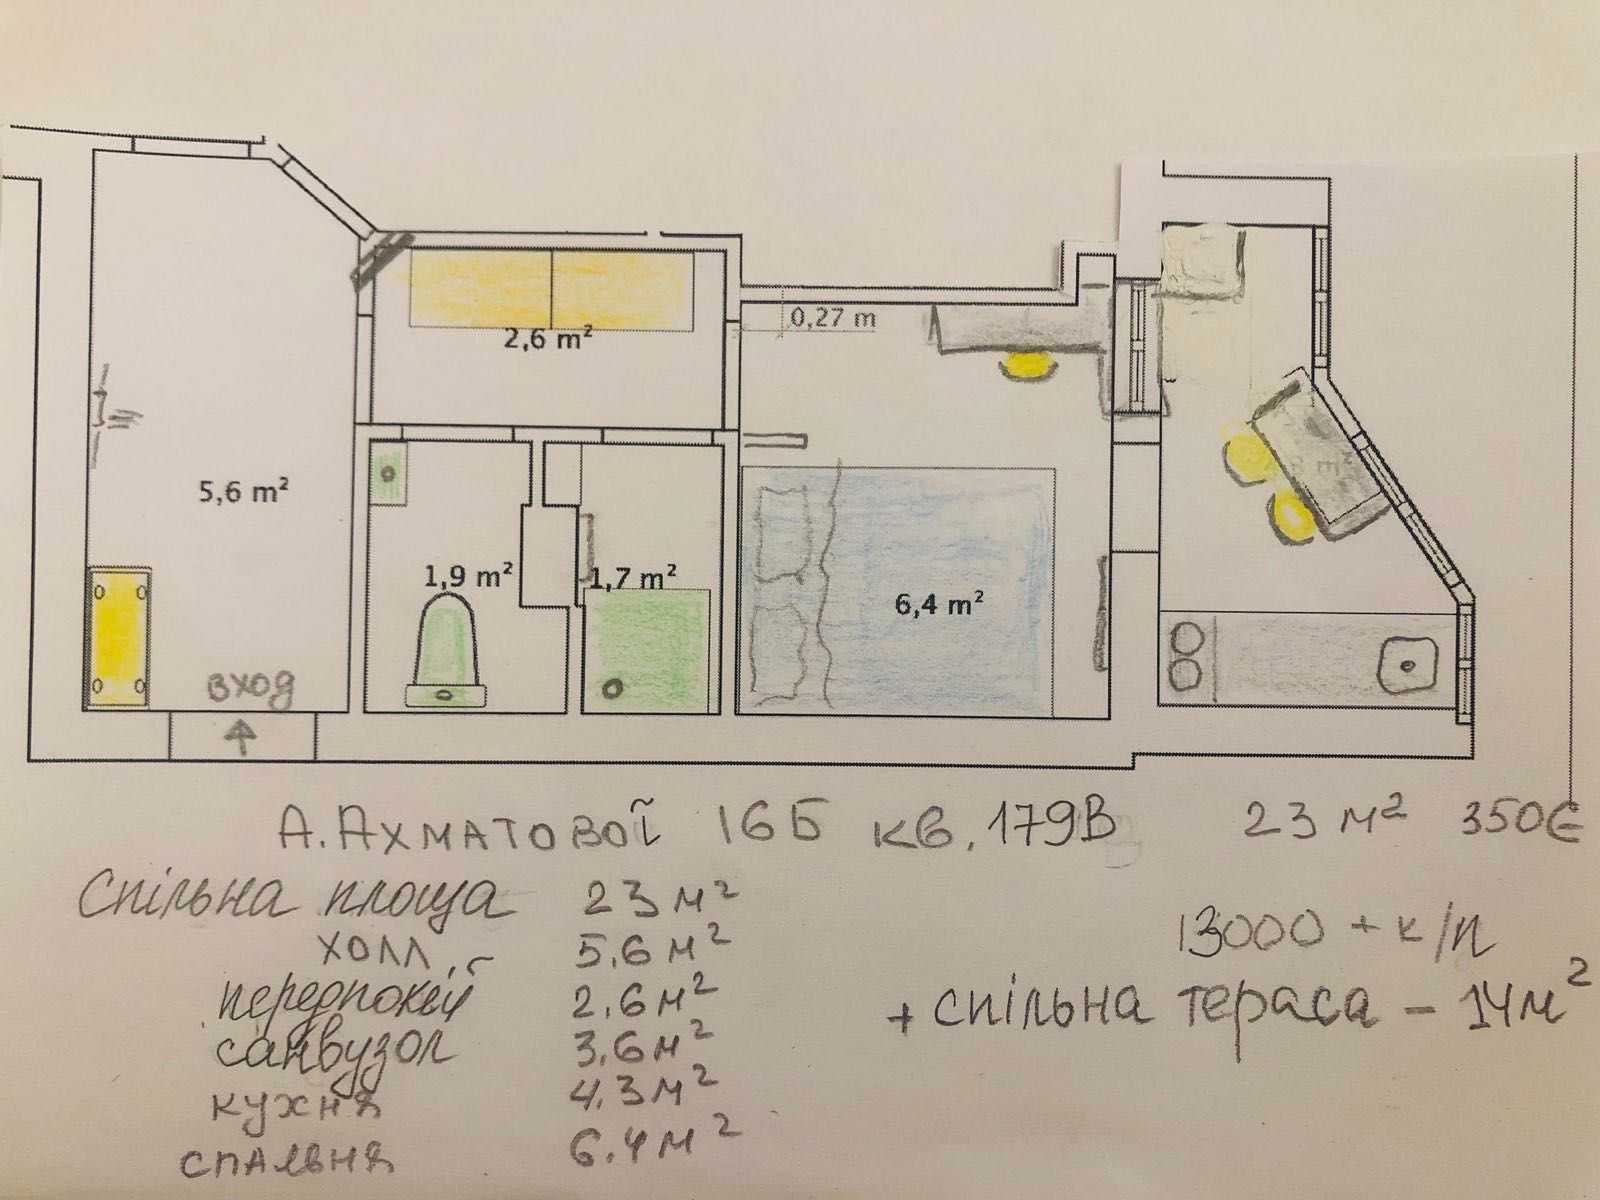 0,27 m
2,6 m²
5,6 m²
1,9 m²
1,7 m²
6,4 m²
вход
А.Ахматової 16Б кв. 179В 23 м² 350€
Спільна площа 23 м²
холл 5.6 м²
передпокій 2.6 м²
санвузол 3.6 м²
кухня 4.3 м²
спальня 6.4 м²
13000 + к/п
+ спільна тераса - 14м²